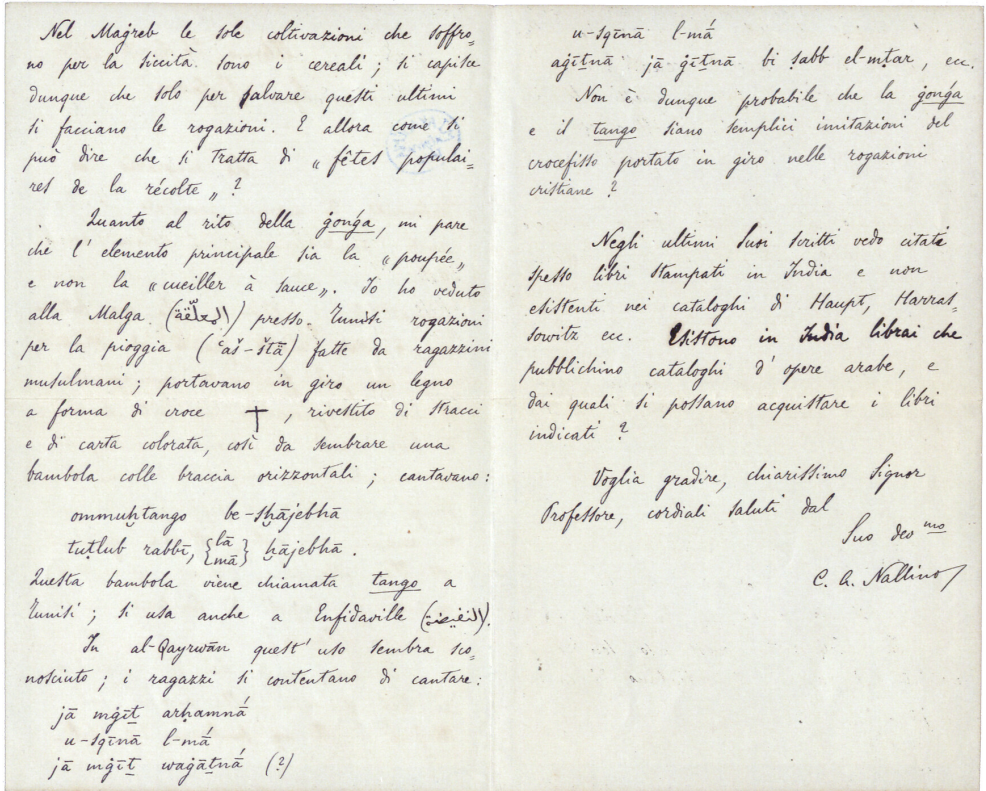 Nel Maġreb le sole coltivazioni che soffro-
no per la siccità sono i cereali; si capisce
dunque che solo per salvare questi ultimi
si facciano le rogazioni. E allora come si
può dire che si tratta di „ fêtes populai-
res de la récolte „ ?
Quanto al rito della ġonġa, mi pare
che l'elemento principale sia la „ poupée „
e non la „ cueiller à sauce „. Io ho veduto
alla Malga (المعلّقة) presso Tunisi rogazioni
per la pioggia (ʿaš-štā) fatte da ragazzini
musulmani; portavano in giro un legno
a forma di croce †, rivestito di stracci
e di carta colorata, così da sembrare una
bambola colle braccia orizzontali; cantavano:
ommuḫtango be-sḫājebhā
tuṭlub rabbī, {lā mā} ḫājebhā.
Questa bambola viene chiamata tango a
Tunisi; si usa anche a Enfidaville (النفيضة).
In al-Qayrwān quest'uso sembra sco-
nosciuto; i ragazzi si contentano di cantare:
jā mġīṯ arḥamnā́
u-sqīnā l-mā́
jā mġīṯ waġāṯnā́ (?)
u-sqīnā l-mā́
aġīṯnā jā ġīṯnā bi ṣabb el-mtar, ecc.
Non è dunque probabile che la ġonġa
e il tango siano semplici imitazioni del
crocefisso portato in giro nelle rogazioni
cristiane ?
Negli ultimi Suoi scritti vedo citati
spesso libri stampati in India e non
esistenti nei cataloghi di Haupt, Harras-
sowitz ecc. Esistono in India librai che
pubblichino cataloghi d'opere arabe, e
dai quali si possano acquistare i libri
indicati ?
Voglia gradire, chiarissimo Signor
Professore, cordiali saluti dal
Suo devmo
C. A. Nallino